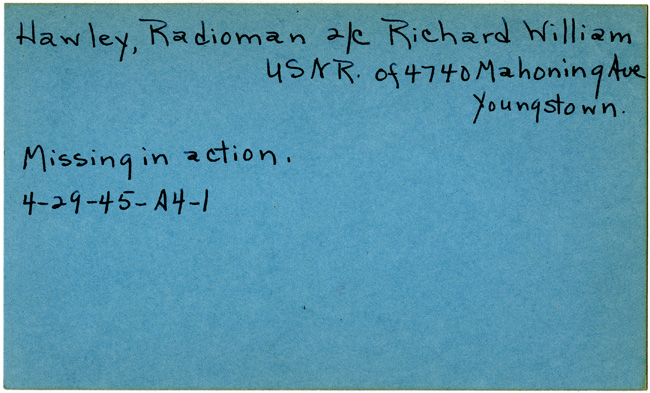 Hawley, Radioman 2/c Richard William
USNR. of 4740 Mahoning Ave
Youngstown.
Missing in action.
4-29-45-A4-1